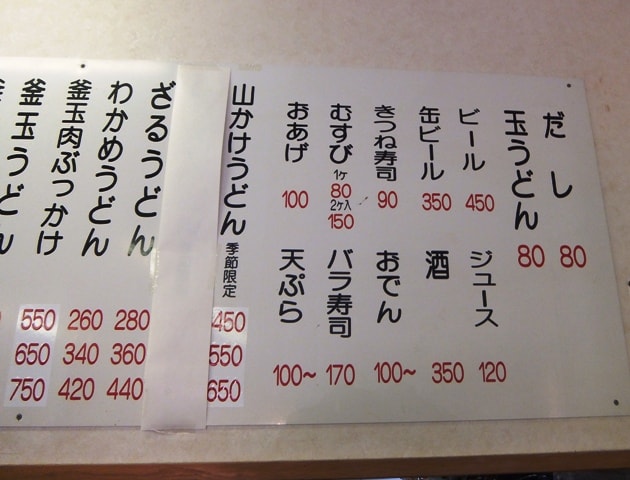 だし 80
玉うどん 80
ビール 450
ジュース 120
缶ビール 350
酒 350
きつね寿司 90
おでん 100~
むすび 1ケ 80 2ケ入 150
バラ寿司 170
おあげ 100
天ぷら 100~
山かけうどん 季節限定 450 550 650
ざるうどん 280 360 440
わかめうどん 260 340 420
釜玉肉ぶっかけ 550 650 750
釜玉うどん